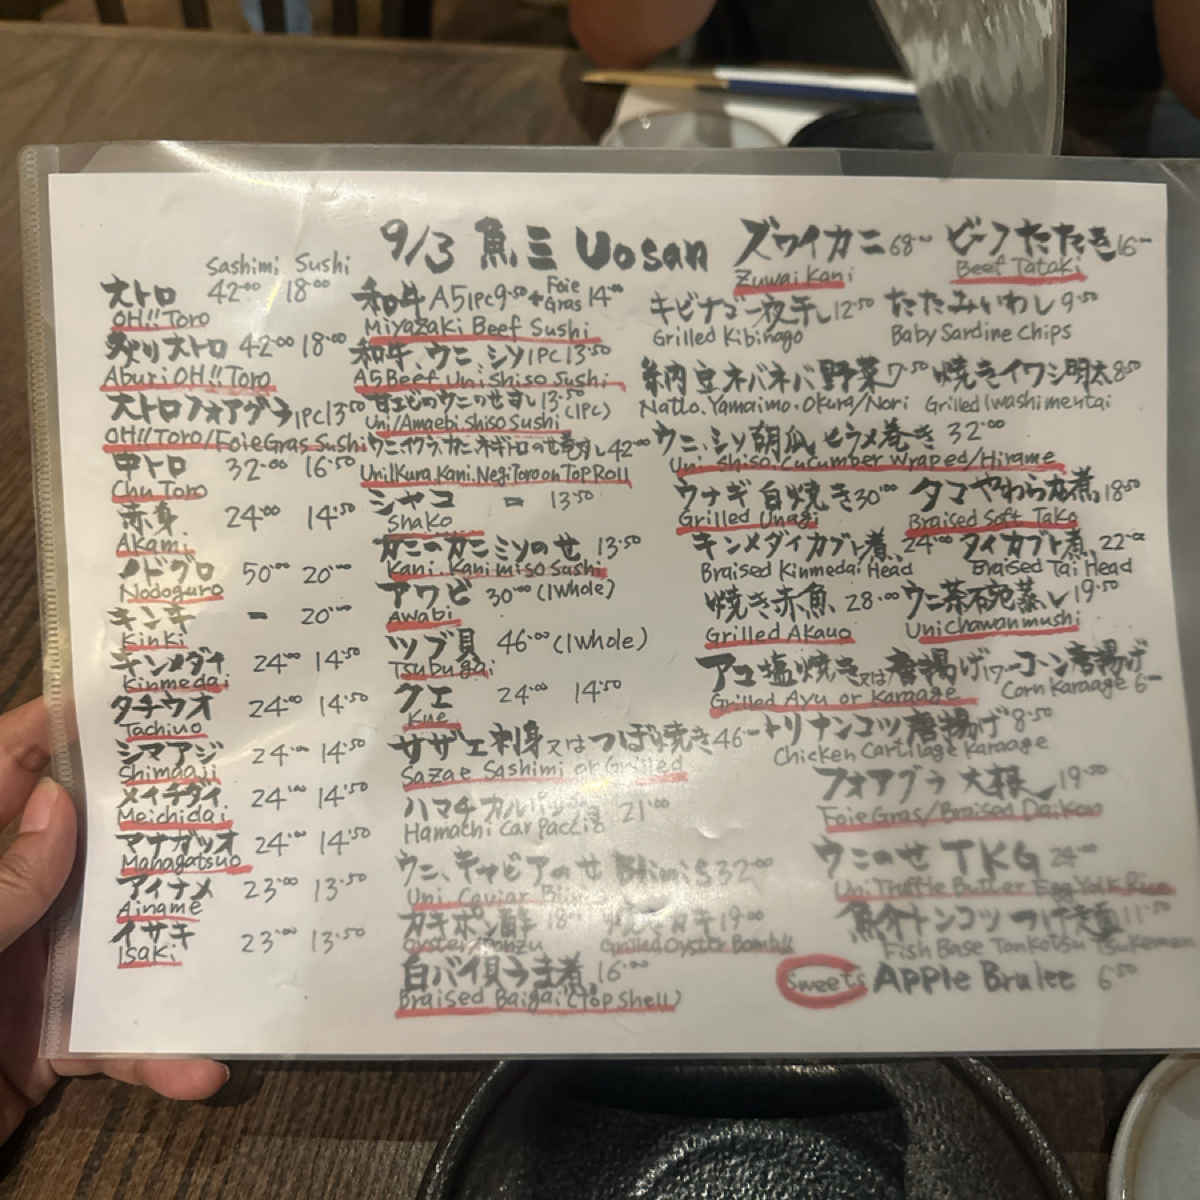 9/3 魚三 Uosan
Sashimi Sushi
大トロ 42.00 18.00
OH!! Toro
炙り大トロ 42.00 18.00
Aburi OH!! Toro
大トロフォアグラ 1PC 13.50
OH!! Toro/Foie Gras Sushi
中トロ 32.00 16.50
Chu Toro
赤身 24.00 14.50
Akami
ノドグロ 50.00 20.00
Nodoguro
キンキ - 20.00
Kinki
キンメダイ 24.00 14.50
Kinmedai
タチウオ 24.00 14.50
Tachiuo
シマアジ 24.00 14.50
Shimaaji
メイチダイ 24.00 14.50
Meichidai
マナガツオ 24.00 14.50
Managatsuo
アイナメ 23.00 13.50
Ainame
イサキ 23.00 13.50
Isaki
和牛 A5 1PC 9.50 + Foie Gras 14.00
Miyazaki Beef Sushi
和牛、ウニ、シソ 1PC 13.50
A5 Beef. Uni Shiso Sushi
甘エビのウニのせ 13.50
Uni/Amaebi Shiso Sushi (1PC)
ウニ、イクラ、カニ、ネギトロのせ 42.00
Uni. Ikura. Kani. Negi Toro on Top Roll
シャコ - 13.50
Shako
カニのカニミソのせ 13.50
Kani. Kani miso Sushi
アワビ 30.00 (1whole)
Awabi
ツブ貝 46.00 (1whole)
Tsubugai
クエ 24.00 14.50
Kue
サザエ刺身又はつぼ焼き 46-
Sazae Sashimi or Grilled
ハマチカルパッチョ 21.00
Hamachi Carpaccio
ウニ、キャビアのせ Blinis 32.00
Uni. Caviar Blini
カキポン酢 18 焼きガキ 19.00
Oyster/Ponzu Grilled Oyster Bomb!!
白バイ貝うま煮 16.00
Braised Baigai (Top Shell)
ズワイカニ 68- ビーフたたき 16-
Zuwai Kani Beef Tataki
キビナゴ一夜干し 12.50 たたみいわし 9.50
Grilled Kibinago Baby Sardine Chips
納豆ネバネバ野菜 7.50 焼きイワシ明太 8.50
Natto. Yamaimo. Okura/Nori Grilled Iwashi mentai
ウニ、シソ、胡瓜、ヒラメ巻き 32.00
Uni. Shiso. Cucumber Wraped/Hirame
ウナギ白焼き 30.00 タコやわらか煮 18.50
Grilled Unagi Braised Soft Tako
キンメダイカブト煮 24.00 タイカブト煮 22.00
Braised Kinmedai Head Braised Tai Head
焼き赤魚 28.00 ウニ茶碗蒸し 19.50
Grilled Akauo Uni Chawanmushi
アユ塩焼き又は唐揚げ 17- コーン唐揚げ
Grilled Ayu or Karaage Corn Karaage 6-
トリナンコツ唐揚げ 8.50
Chicken Cartilage Karaage
フォアグラ大根 19.50
Foie Gras/Braised Daikon
ウニのせTKG 24.00
Uni Truffle Butter Egg Yolk Rice
魚介トンコツつけ麺 11.50
Fish Base Tonkotsu Tsukemen
Sweets Apple Brulee 6.50